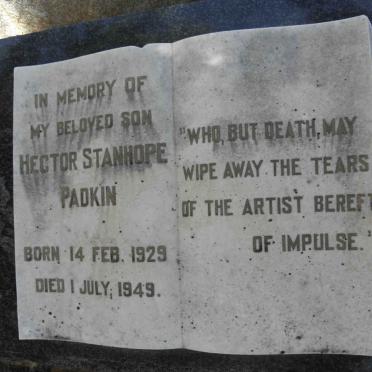 IN MEMORY OF
MY BELOVED SON
HECTOR STANHOPE
PADKIN
BORN 14 FEB. 1929
DIED 1 JULY, 1949.
"WHO, BUT DEATH, MAY
WIPE AWAY THE TEARS
OF THE ARTIST BEREFT
OF IMPULSE."